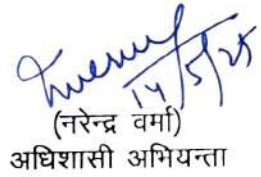 14/5/25
(नरेन्द्र वर्मा)
अधिशासी अभियन्ता